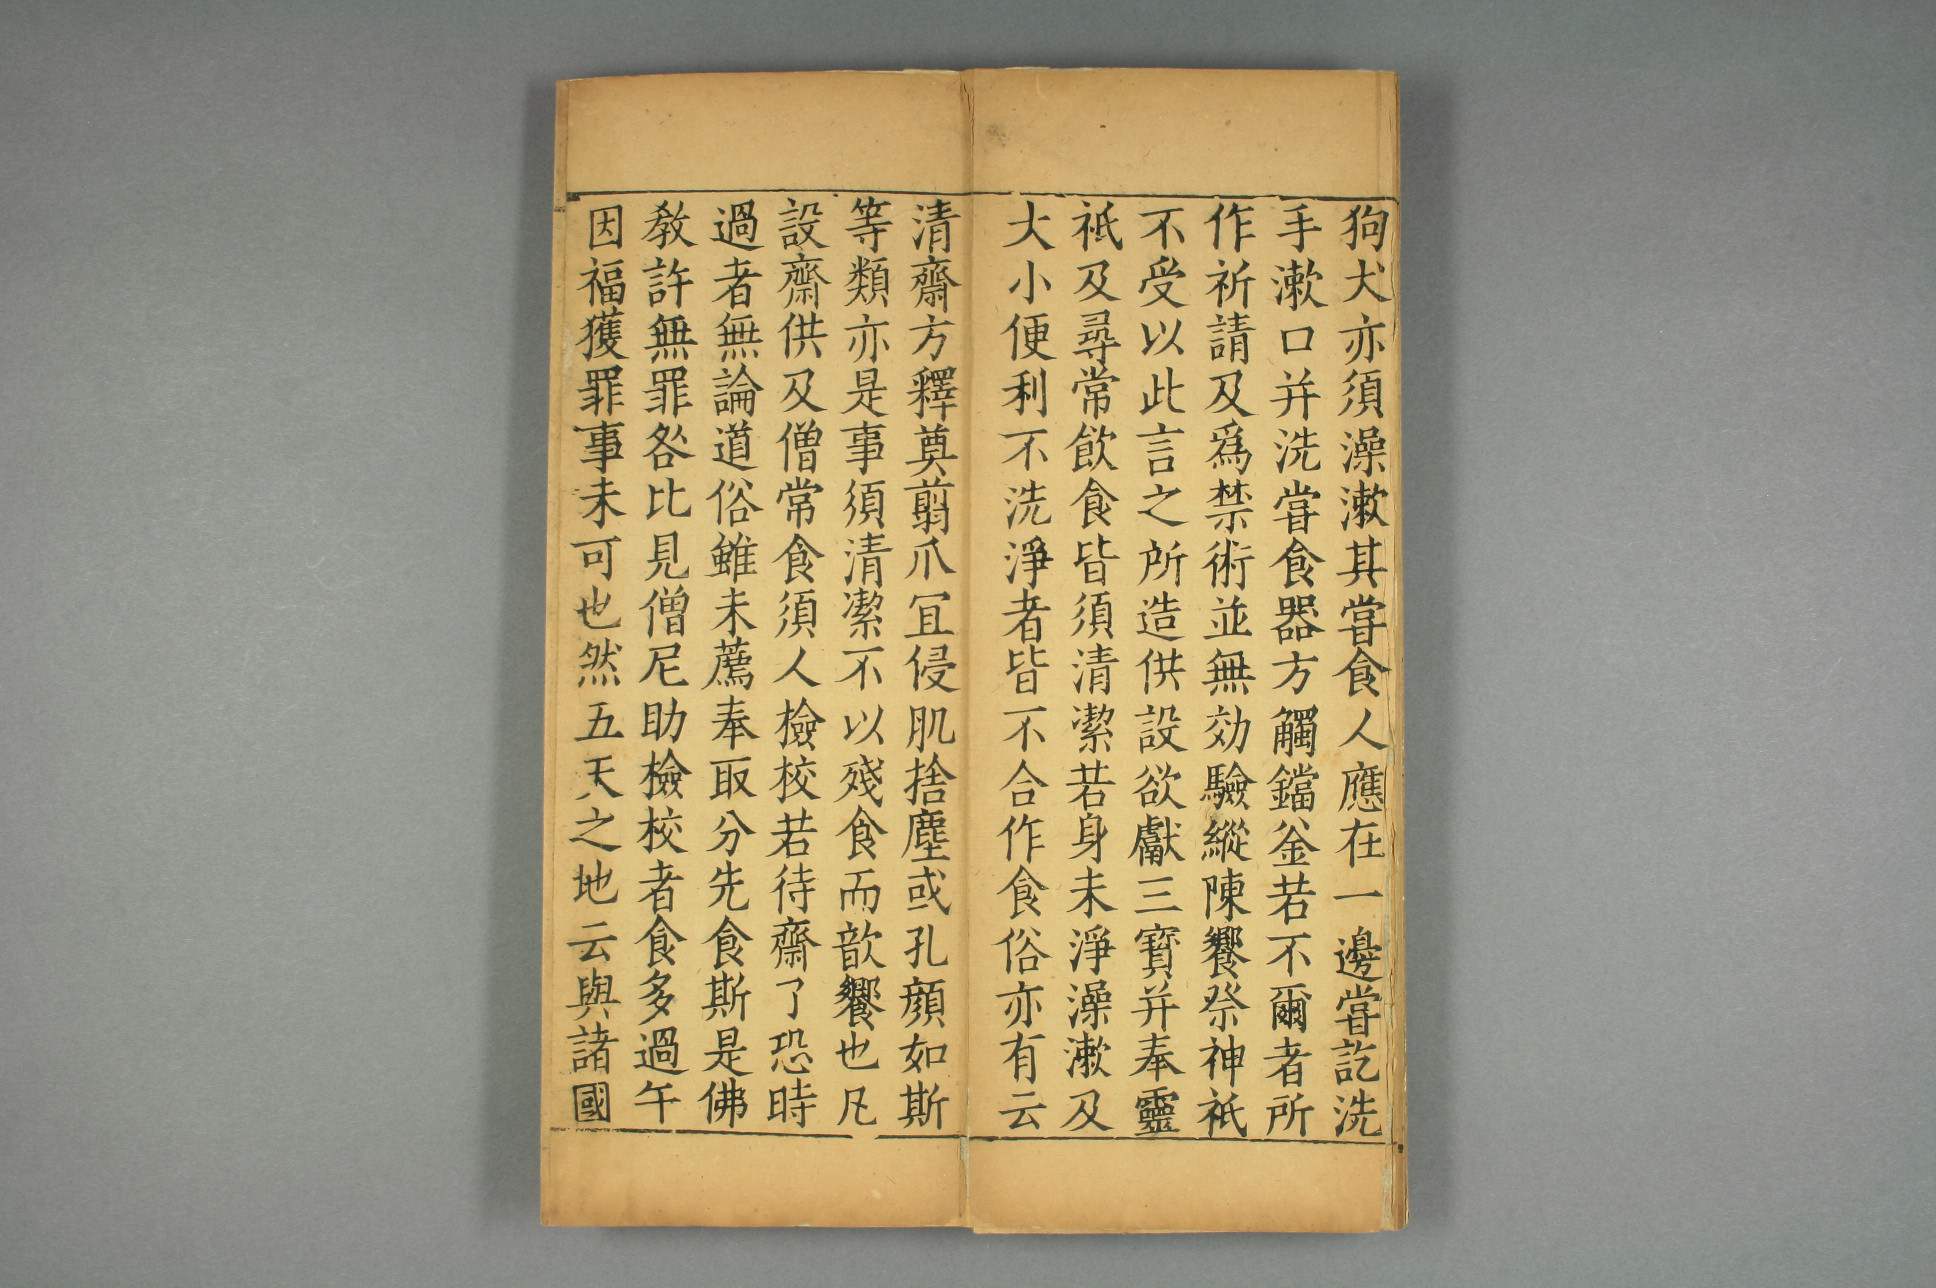 狗犬亦須澡漱其甞食人應在一邊甞訖洗
手漱口并洗甞食器方觸鐺釜若不爾者所
作祈請及爲禁術並無効驗縱陳饗祭神祇
不受以此言之所造供設欲獻三寶并奉靈
祇及尋常飲食皆須清潔若身未淨澡漱及
大小便利不洗淨者皆不合作食俗亦有云
清齋方釋奠翦爪宜侵肌捨塵或孔顔如斯
等類亦是事須清潔不以殘食而歆饗也凡
設齋供及僧常食須人檢校若待齋了恐時
過者無論道俗雖未薦奉取分先食斯是佛
教許無罪咎比見僧尼助檢校者食多過午
因福獲罪事未可也然五天之地云與諸國